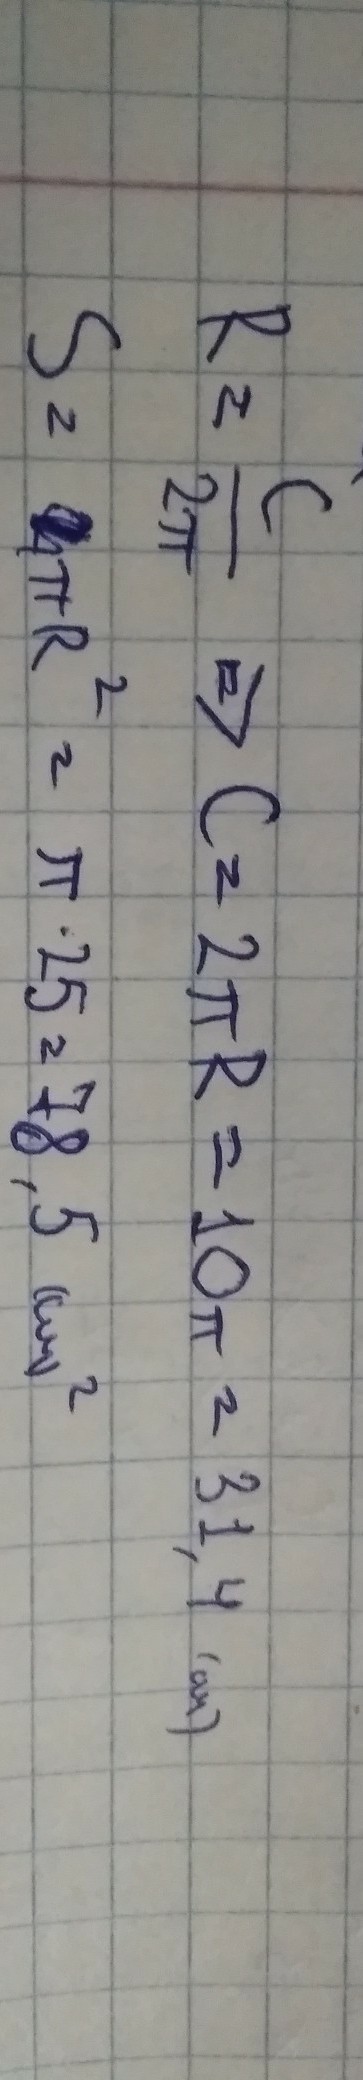 R = C/2π ⇒ C = 2πR = 10π = 31,4 (см)
S = πR² = π·25 = 78,5 (см)²